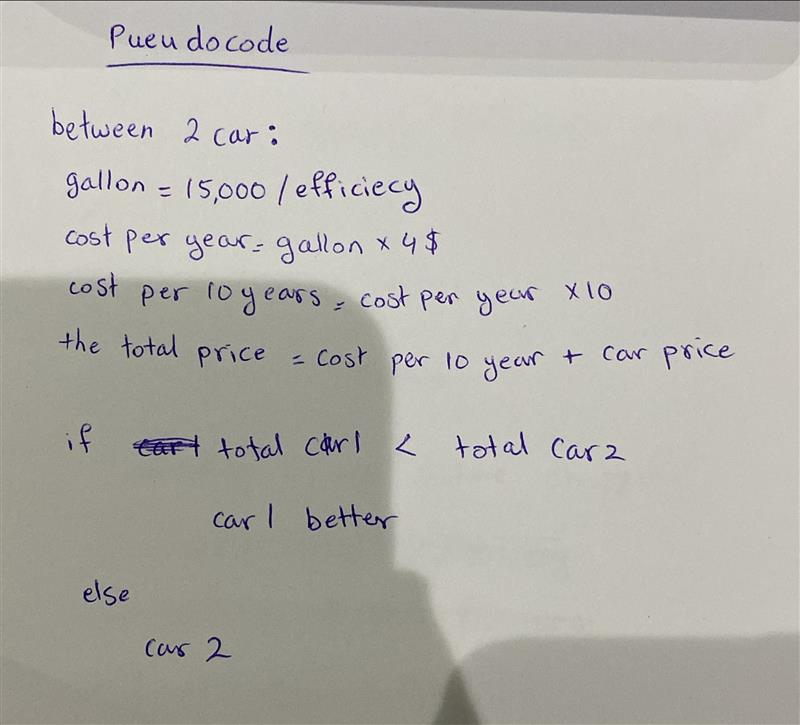 Pueudocode
between 2 car:
gallon = 15,000 / efficiecy
cost per year = gallon × 4$
cost per 10 years = cost per year ×10
the total price = cost per 10 year + car price
if total car1 < total car2
car1 better
else
car 2